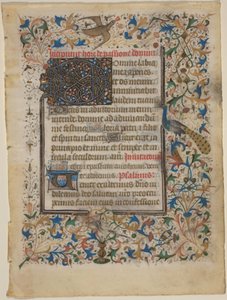 Incipiunt hore de passione domini
Domine labia
mea aperies
et os meum
annunciabit
laudem tuam
Deus in adiutorium meum in
tende domine ad adiuvandum
me festina Gloria patri et filio
et spiritui sancto Sicut erat in
principio et nunc et semper et in
secula seculorum Invitatorium
Psalmus
Venite exultemus domino
iubilemus deo salutari nostro preoccu
pemus faciem eius in confessione